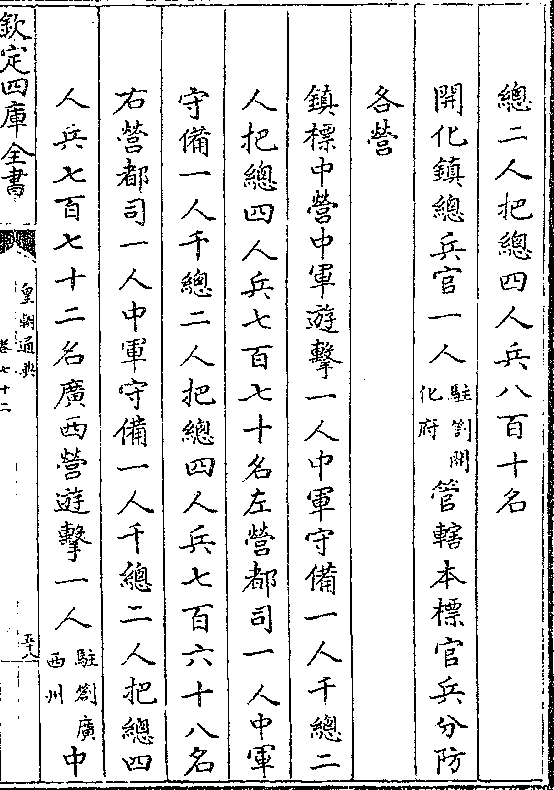 總二人把總四人兵八百十名
開化鎮總兵官一人駐劄開化府管轄本標官兵分防
各營
鎮標中營中軍遊擊一人中軍守備一人千總二
人把總四人兵七百七十名左營都司一人中軍
守備一人千總二人把總四人兵七百六十八名
右營都司一人中軍守備一人千總二人把總四
人兵七百七十二名廣西營遊擊一人駐劄廣西州中
欽定四庫全書
皇朝通典
卷七十二
五八